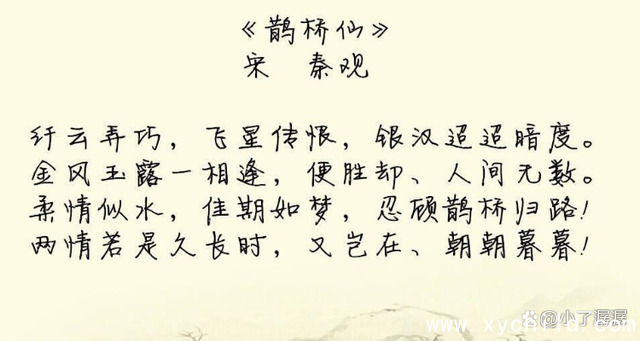 《鹊桥仙》
宋 秦观
纤云弄巧，飞星传恨，银汉迢迢暗度。
金风玉露一相逢，便胜却、人间无数。
柔情似水，佳期如梦，忍顾鹊桥归路！
两情若是久长时，又岂在、朝朝暮暮！
@小了渥渥